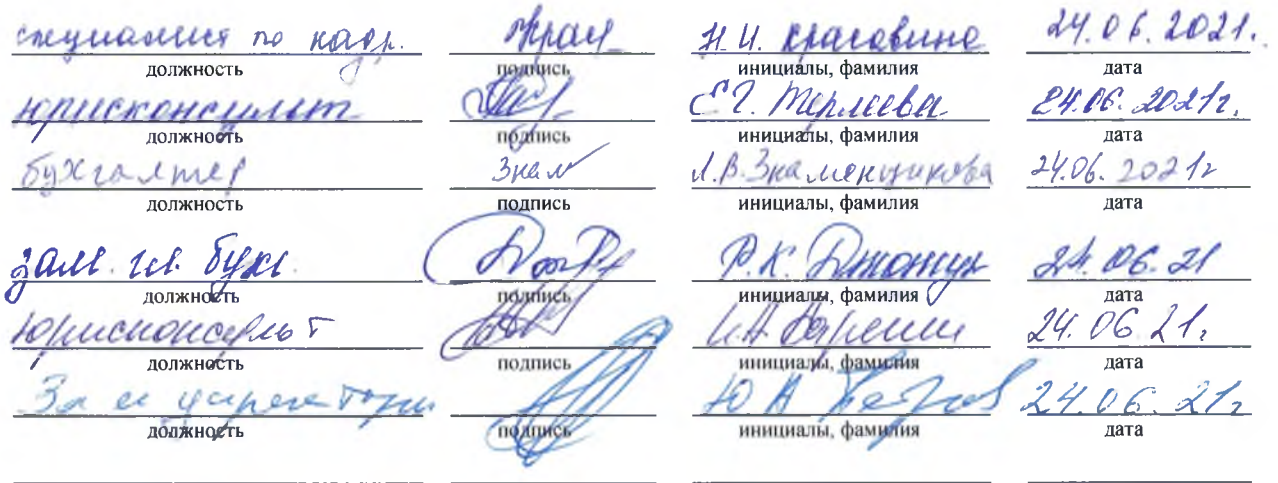 специалист по кадр. Н.И. Красавина 24.06.2021.
должность подпись инициалы, фамилия дата
юрисконсульт Е.Г. 24.06.2021г.
должность подпись инициалы, фамилия дата
бухгалтер Знам Л.В. Знаменщикова 24.06.2021г
должность подпись инициалы, фамилия дата
зам. гл. бухг. Р.К. 24.06.21
должность подпись инициалы, фамилия дата
Юрисконсульт 24.06.21г
должность подпись инициалы, фамилия дата
Зам директора Ю А Петров 24.06.21г
должность подпись инициалы, фамилия дата